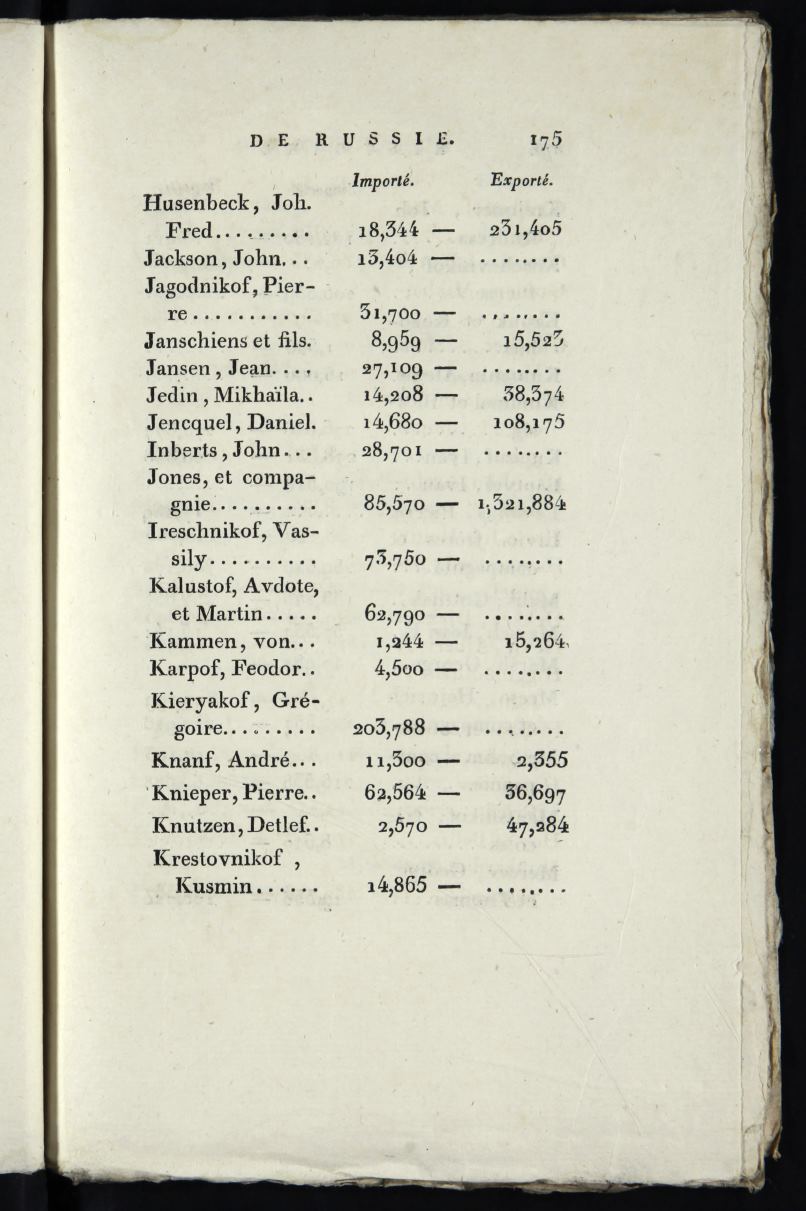 DE RUSSIE. 175
Importé. Exporté.
Husenbeck, Joh.
Fred......... 18,344 — 231,405
Jackson, John... 13,404 — ........
Jagodnikof, Pier-
re........... 31,700 — ........
Janschiens et fils. 8,959 — 15,523
Jansen, Jean.... 27,109 — ........
Jedin, Mikhaïla.. 14,208 — 38,374
Jencquel, Daniel. 14,680 — 108,175
Inberts, John... 28,701 — ........
Jones, et compa-
gnie.......... 85,570 — 1,321,884
Ireschnikof, Vas-
sily.......... 73,750 — ........
Kalustof, Avdote,
et Martin..... 62,790 — ........
Kammen, von... 1,244 — 15,264
Karpof, Feodor.. 4,500 — ........
Kieryakof, Gré-
goire......... 203,788 — ........
Knanf, André... 11,300 — 2,355
Knieper, Pierre.. 62,564 — 36,697
Knutzen, Detlef.. 2,570 — 47,284
Krestovnikof,
Kusmin...... 14,865 — ........